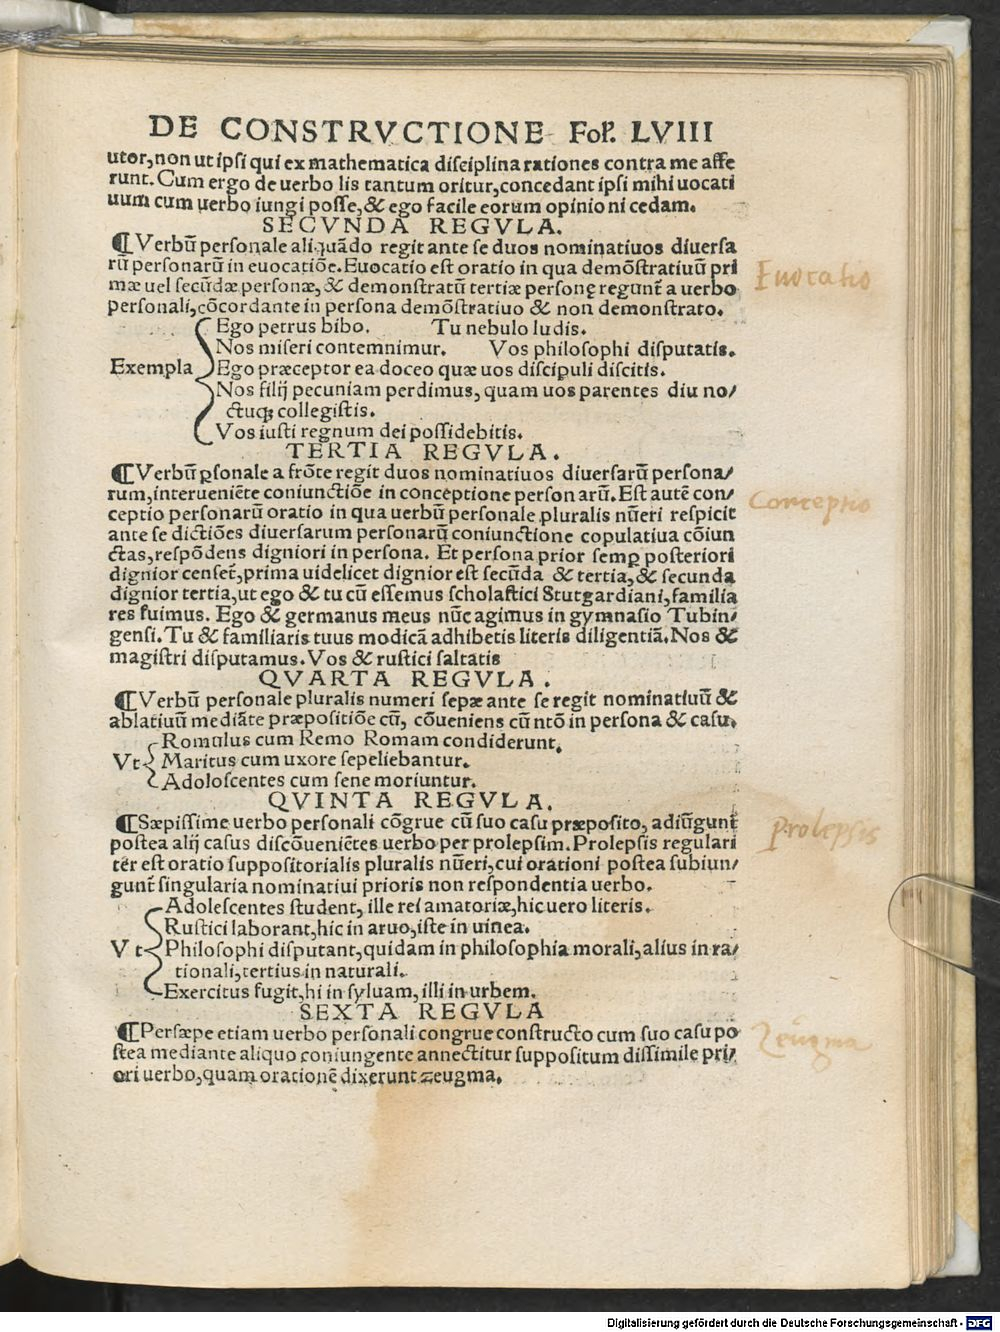 DE CONSTRVCTIONE Fol'. LVIII
utor, non ut ipsi qui ex mathematica disciplina rationes contra me affe
runt. Cum ergo de uerbo lis tantum oritur, concedant ipsi mihi uocati
uum cum uerbo iungi posse, & ego facile eorum opinioni cedam.
SECVNDA REGVLA.
¶Verbū personale aliquādo regit ante se duos nominatiuos diuersa
rū personarū in euocatiōe. Euocatio est oratio in qua demōstratiuū pri
Euocatio
mæ uel secūdæ personæ, & demonstratū tertiæ personę regunt̃ a uerbo
personali, cōcordante in persona demōstratiuo & non demonstrato.
Ego petrus bibo. Tu nebulo ludis.
Nos miseri contemnimur. Vos philosophi disputatis.
Exempla Ego præceptor ea doceo quæ uos discipuli discitis.
Nos filij pecuniam perdimus, quam uos parentes diu no/
ctuq; collegistis.
Vos iusti regnum dei possidebitis.
TERTIA REGVLA.
¶Verbū ꝑsonale a frōte regit duos nominatiuos diuersarū persona/
rum, interueniēte coniunctiōe in conceptione personarū. Est autē con/
Conceptio
ceptio personarū oratio in qua uerbū personale pluralis nūeri respicit
ante se dictiōes diuersarum personarū coniunctione copulatiua cōiun
ctas, respōdens digniori in persona. Et persona prior semꝑ posteriori
dignior censet̃, prima uidelicet dignior est secūda & tertia, & secunda
dignior tertia, ut ego & tu cū essemus scholastici Stutgardiani, familia
res fuimus. Ego & germanus meus nūc agimus in gymnasio Tubin/
gensi. Tu & familiaris tuus modicā adhibetis literis diligentiā. Nos &
magistri disputamus. Vos & rustici saltatis
QVARTA REGVLA.
¶Verbū personale pluralis numeri sepæ ante se regit nominatiuū &
ablatiuū mediāte præpositiōe cū, cōueniens cū ntō in persona & casu.
Romulus cum Remo Romam condiderunt.
Vt Maritus cum uxore sepeliebantur.
Adoloscentes cum sene moriuntur.
QVINTA REGVLA.
¶Sæpissime uerbo personali cōgrue cū suo casu præposito, adiūgunt̃
Prolepsis
postea alij casus discōueniētes uerbo per prolepsim. Prolepsis regulari
ter est oratio suppositorialis pluralis nūeri, cui orationi postea subiun/
gunt̃ singularia nominatiui prioris non respondentia uerbo.
Adolescentes student, ille rei amatoriæ, hic uero literis.
Rustici laborant, hic in aruo, iste in uinea.
Vt Philosophi disputant, quidam in philosophia morali, alius in ra/
tionali, tertius in naturali.
Exercitus fugit, hi in syluam, illi in urbem.
SEXTA REGVLA
¶Persæpe etiam uerbo personali congrue constructo cum suo casu po
Zeugma
stea mediante aliquo coniungente annectitur suppositum dissimile pri/
ori uerbo, quam orationē dixerunt zeugma.
Digitalisierung gefördert durch die Deutsche Forschungsgemeinschaft - DFG